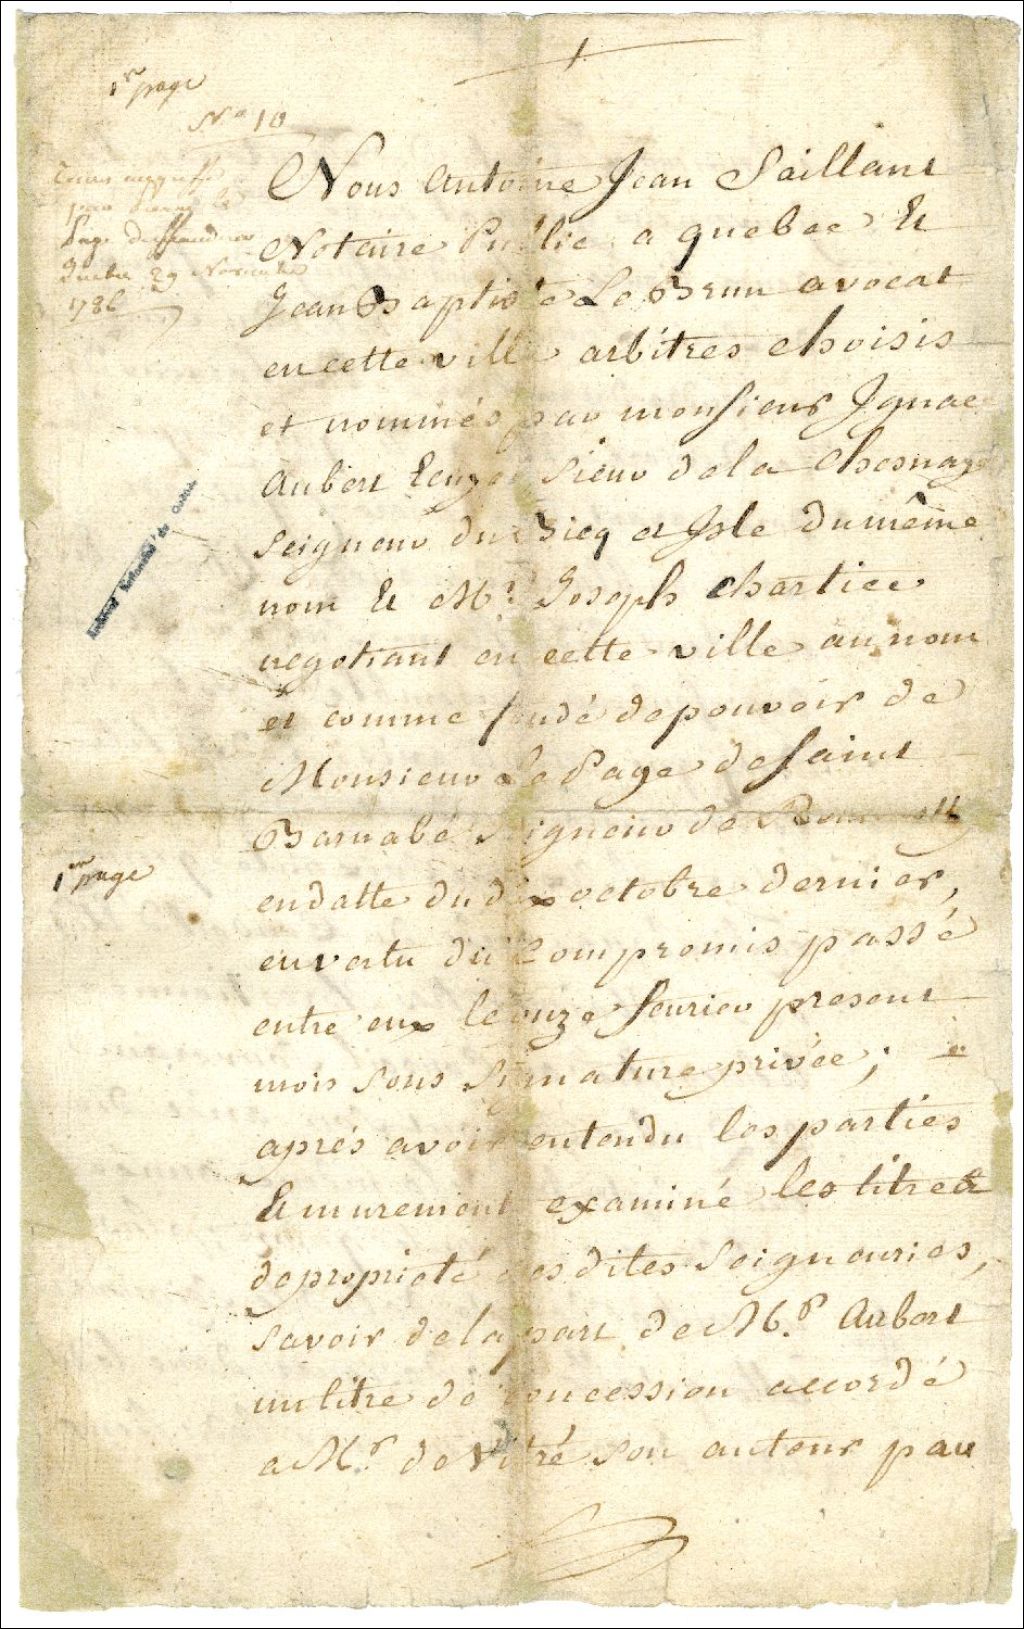 1re page
No 10
pour
Page deffendeur
Quebec 29 Novembre
1786
Nous Antoine Jean Saillant
Notaire Public a quebec Et
Jean Baptiste Le Brun avocat
en cette ville arbitres choisis
et nommés par monsieur Ignace
Aubert Ecuyer Sieur de la Chesnaye
Seigneur du Bicq et Isle du même
nom Et Mr. Joseph Chartier
negotiant en cette ville au nom
et comme fondé de pouvoir de
Monsieur Le Page de Saint
Barnabé Seigneur de
en datte du dix octobre dernier,
en vertu du Compromis passé
entre eux le onze fevrier present
mois sous Signature privée;
aprés avoir entendu les parties
Et murement examiné les titres
de proprieté desdites Seigneuries,
savoir de la part de Mr. Aubert
un titre de concession accordé
a Mr. de Vitré son auteur par
1re page